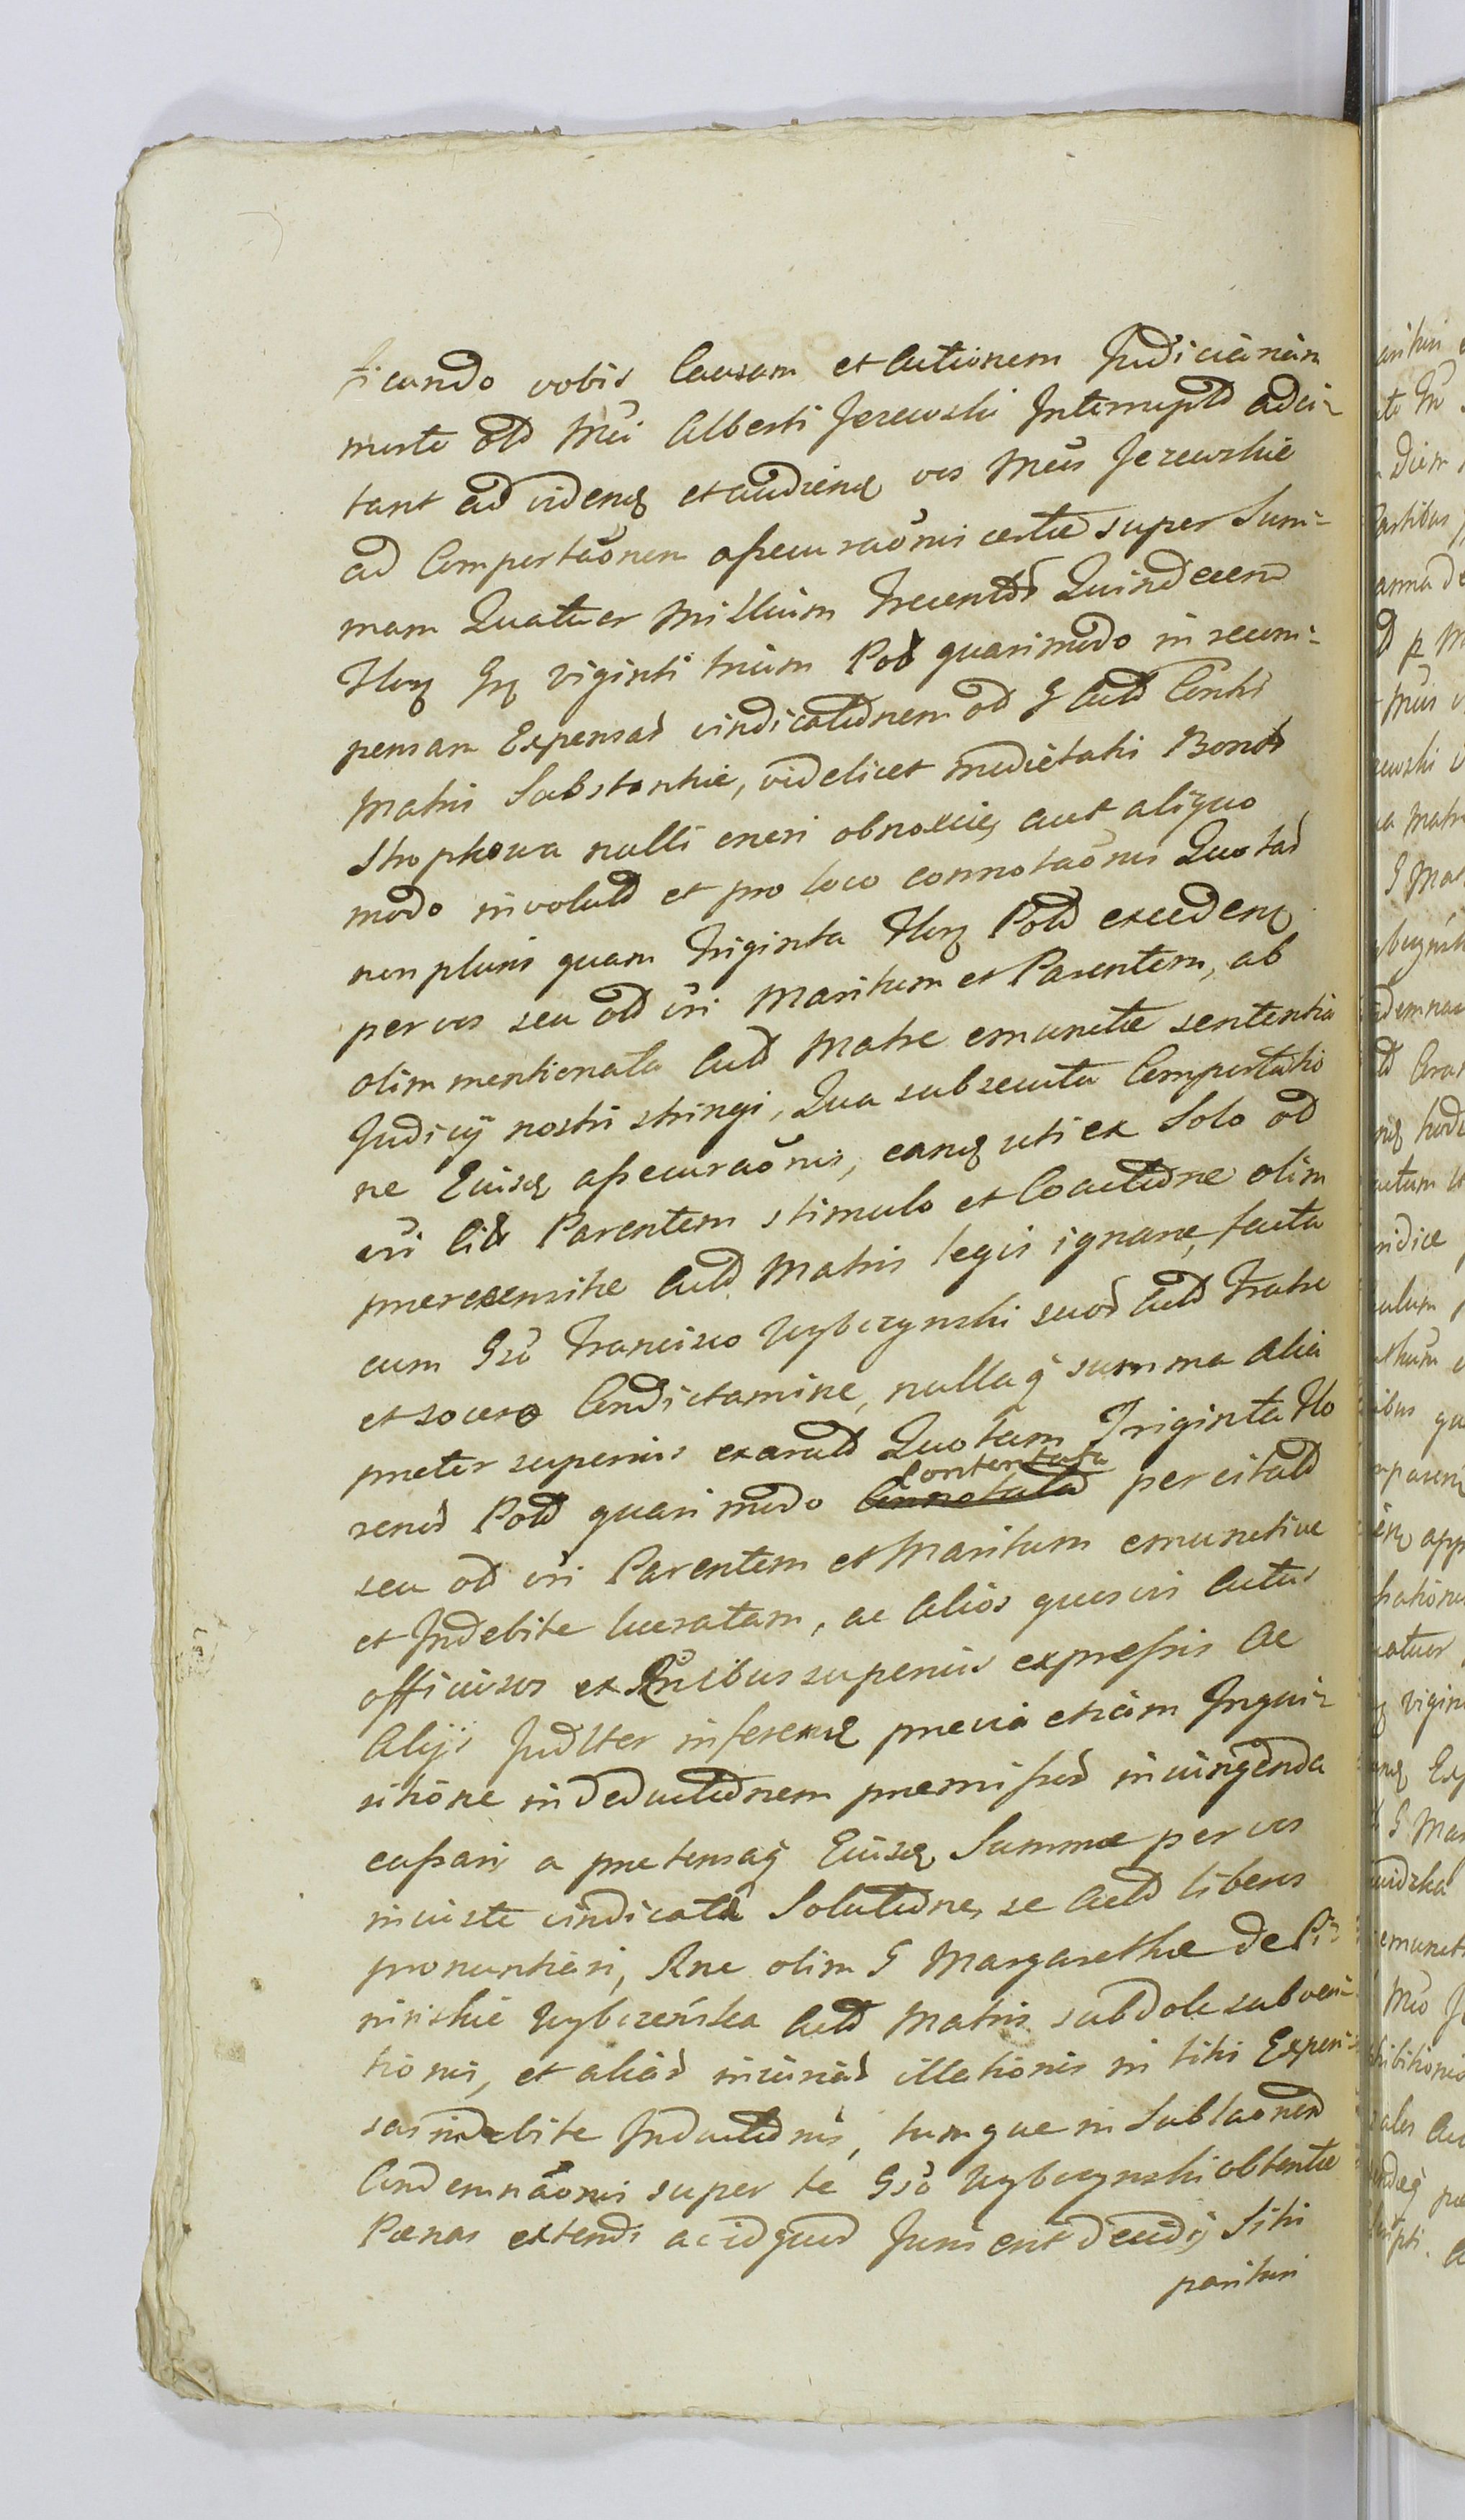 ficando vobis Causam et Actionem Judiciariam
morte old Mci Alberti Jerewski Interrupta adci-
tant ad videnq et audienq vos Mcus Jerewskie
ad Comportaonem assecuraonis certae super Sum-
mam Quatuor Millium Trecentor Quindecem
Florq Grq viginti trium Pol quasimodo in recom-
pensam Expensar vindicationem ad G Actd Conts
Matris Substantiae, videlicet medietatis Bonor
Stropkowa nulli oneri obnoxiae, aut aliquo
modo involutd et pro loco connotaonis Quotas
non pluris quam Triginta Florq Pold excedenq
per vos seu old vri Maritum et Parentem, ab
olim mentionata Actd Matre emunctae sententia
Judicij nostri stringi, Qua subsecuta Comportatio
ne Eiusq assecuraonis, eanq uti ex Solo old
vri Cids Parentem stimulo et Coactione olim
praerecensitae Actd Matris legis ignarae, facta
cum Gso Francisco Wybczynski suor Actd Fratre
et socero Condictamine, nullaq summa alia
praeter superius exaratd Quotam Triginta Flo
renor Pold quasimodo Contentata per citatd
seu old vri Parentem et Maritum emunctive
et Indebite lucratam, ac alios quosvis Actus
officiosos ex Rnibus superius expressis Ac
Alijs Judlter inferenq praevia etiam Inqui-
sitione in deductionem praemissor iniungenda
cassari a praetensaq Eiusq Summae per vos
iniuste vindicata Solutione, se Actd liberos
pronuntiari, Rne olim G Margarethae de Pi-
ninskie Wybczeńska Actd Matris subdole subven-
tionis, et aliar iniuriar illationis in litis Expen-
sas indebite Inductionis, tumque in Sublaonem
Condemnaonis super te Gso Wybczynski obtentae
Paenas extendi ac id quod Juris erit decidi, Siti
parituri